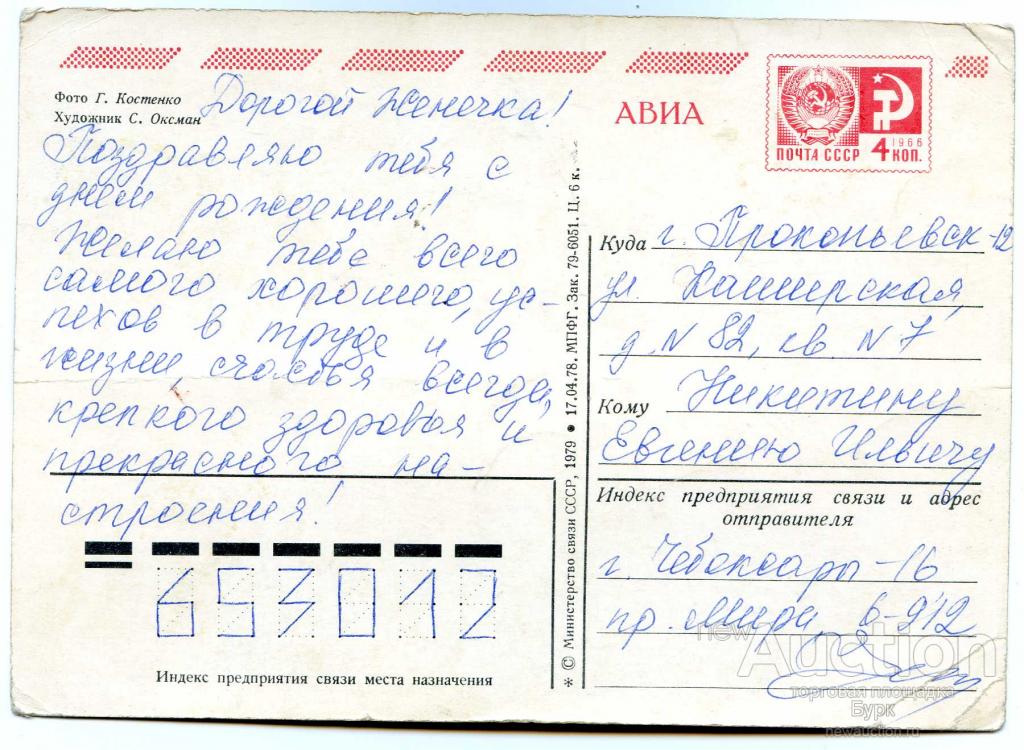 Фото Г. Костенко
Художник С. Оксман
Дорогой Женечка!
Поздравляю тебя с
днем рождения!
Желаю тебе всего
самого хорошего, ус-
пехов в труде и в
жизни, счастья всегда,
крепкого здоровья и
прекрасного на-
строения!
653012
Индекс предприятия связи места назначения
* © Министерство связи СССР, 1979 ● 17.04.78. МПФГ. Зак. 79-6051. Ц. 6 к.
АВИА
ПОЧТА СССР
1966
4 КОП.
Куда г. Прокопьевск-12
ул. Каширская,
д. N 82, кв. N 7
Кому Никитину
Евгению Ильичу
Индекс предприятия связи и адрес
отправителя
г. Чебоксары-16
пр. Мира 6-912
newAuction
торговая площадка
Бурк
newauction.ru